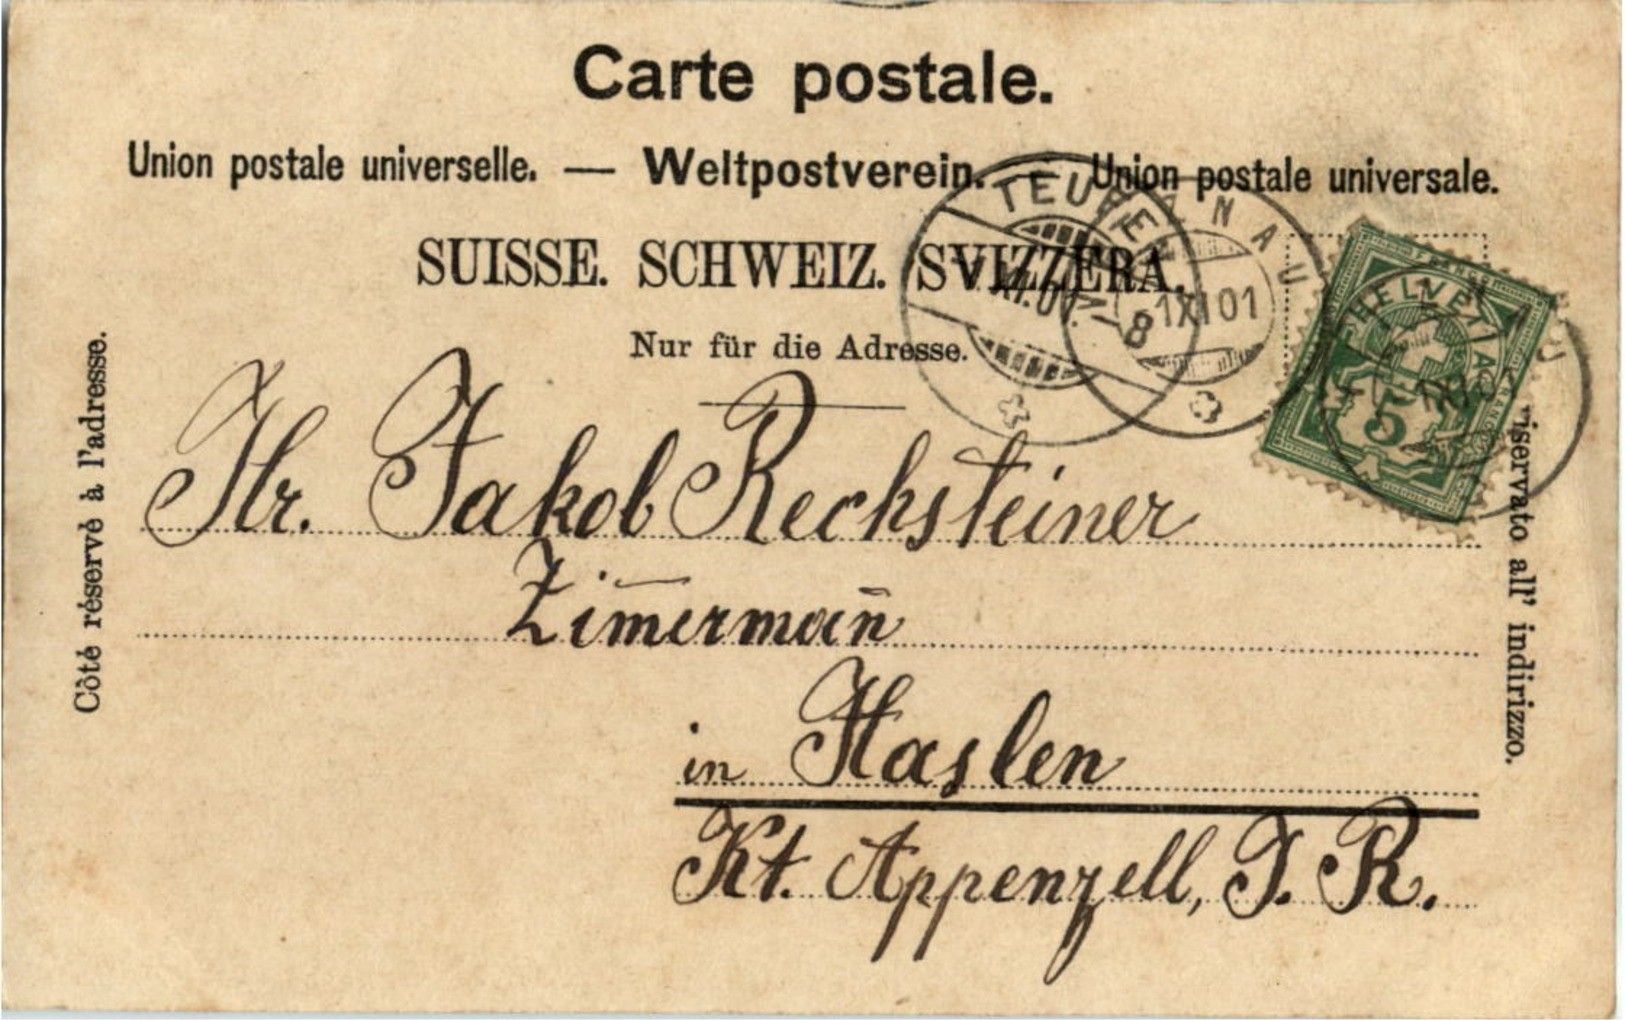 Carte postale.
Union postale universelle. — Weltpostverein. — Union postale universale.
SUISSE. SCHWEIZ. SVIZZERA.
Nur für die Adresse.
TEUFEN
XI.01.
8
1 XI 01
HELVETIA
FRANCO
5
Côté réservé à l'adresse.
Hr. Jakob Rechsteiner
Zim̄erman̄
in Haslen
Kt. Appenzell, I. R.
riservato all' indirizzo.